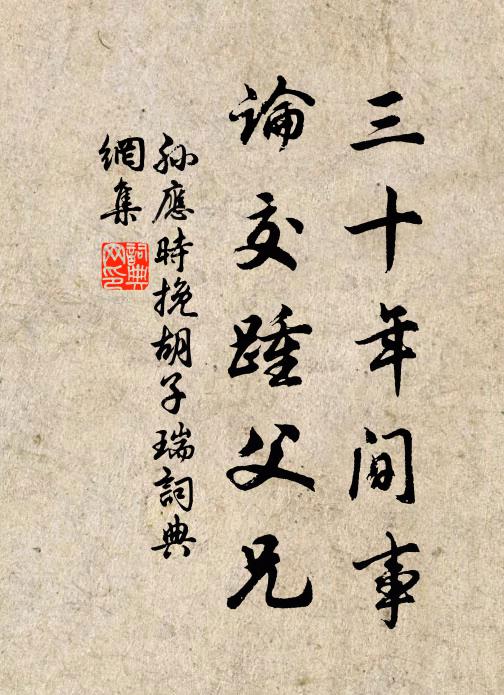 三十年间事
論交踵父兄
孫應時挽胡子瑞詞典
網集
詞典网印